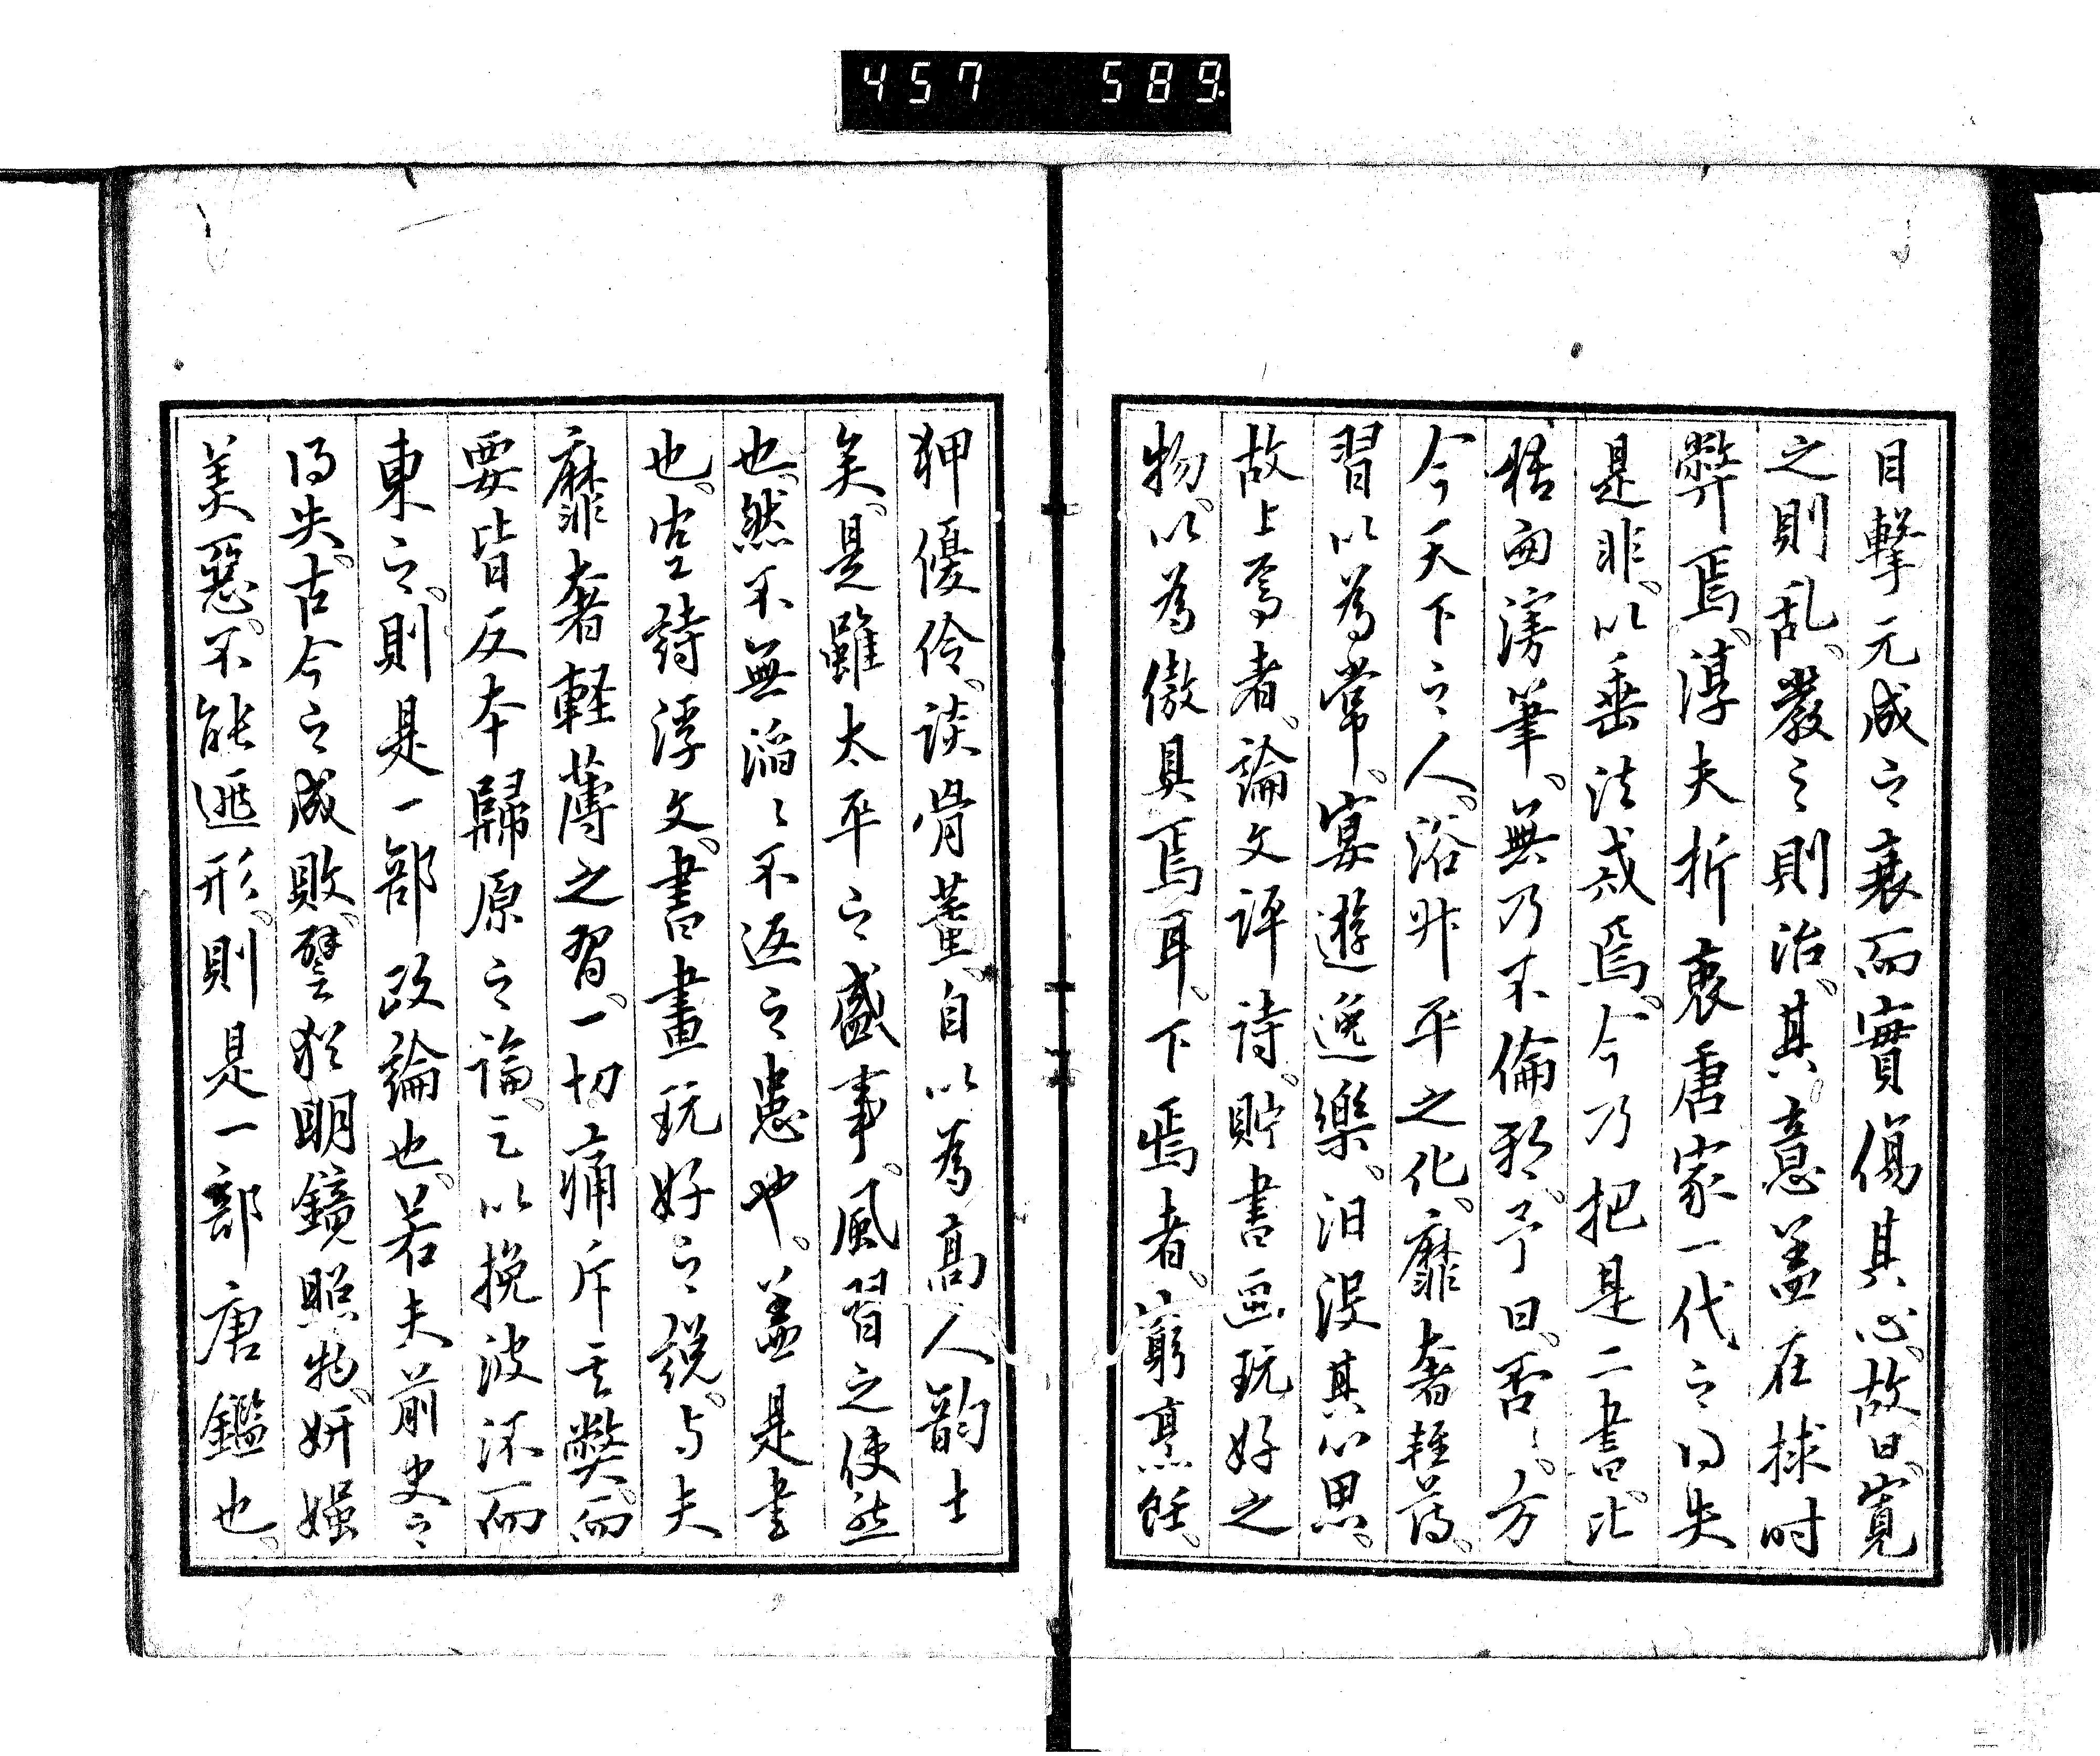 457 589.
目撃元成之衰而實傷其心、故曰、寛
之則乱、嚴之則治、其意盖在捄時
弊焉、淳夫折衷唐家一代之得失
是非、以垂法戒焉、今乃把是二書、比
稽㓜滂筆、無乃不倫耶、予曰、否〻、方
今天下之人、浴升平之化、靡奢軽薄、
習以為常、宴遊逸樂、汨没其心思、
故上焉者、論文評詩、貯書画玩好之
物、以為傲具焉耳、下焉者、窮烹飪、
狎優伶、談骨董、自以為高人韵士
矣、是雖太平之盛事、風習之使然
也、然不無滔〻不返之患也、盖是書
也、空詩浮文、書畫玩好之説、与夫
靡奢軽薄之習、一切痛斥其弊、而
要皆反本歸原之論、之以挽波流而
東之、則是一部政論也、若夫前史之
得失、古今之成敗、譬猶明鏡照物、妍媸
美惡、不能逃形、則是一部唐鑑也、